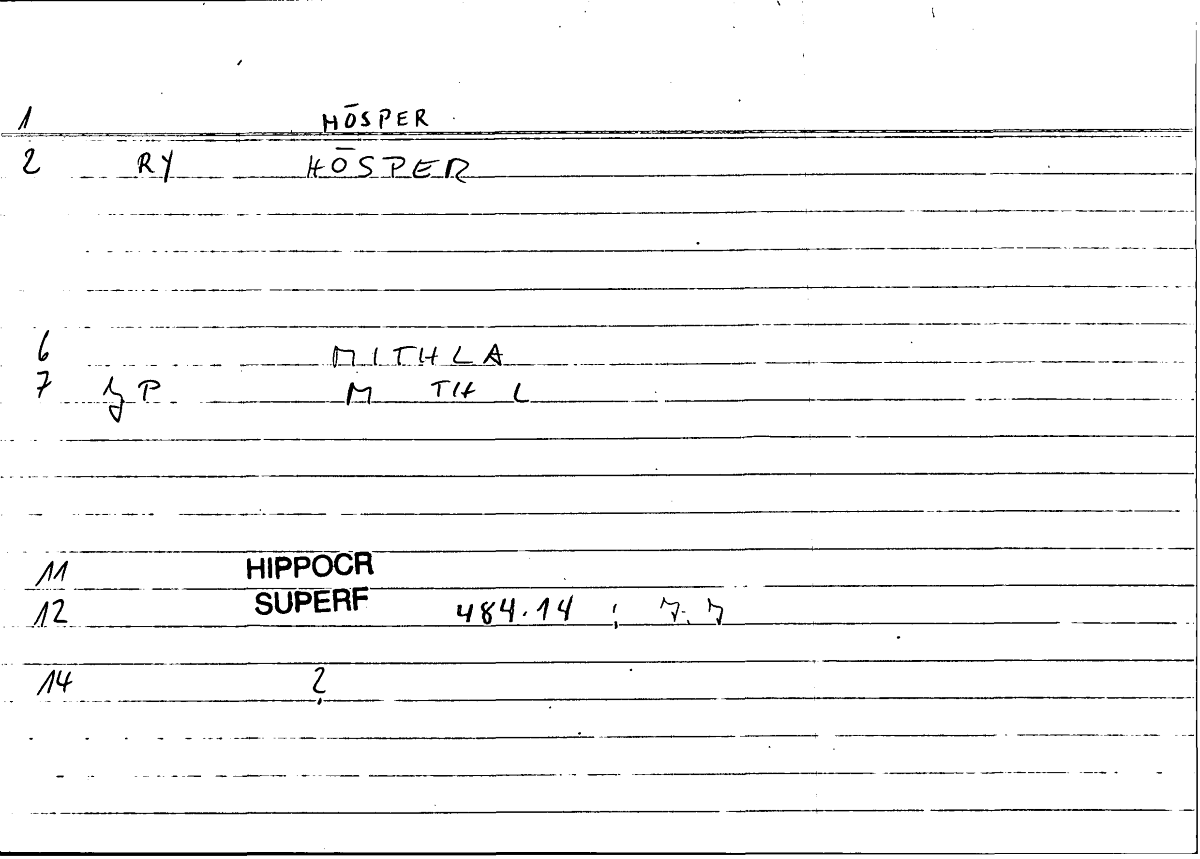 1 HŌSPER
2 RY HŌSPER
6 MITHLA
7 P M TH L
11 HIPPOCR
12 SUPERF 484.14 ;
14 ?